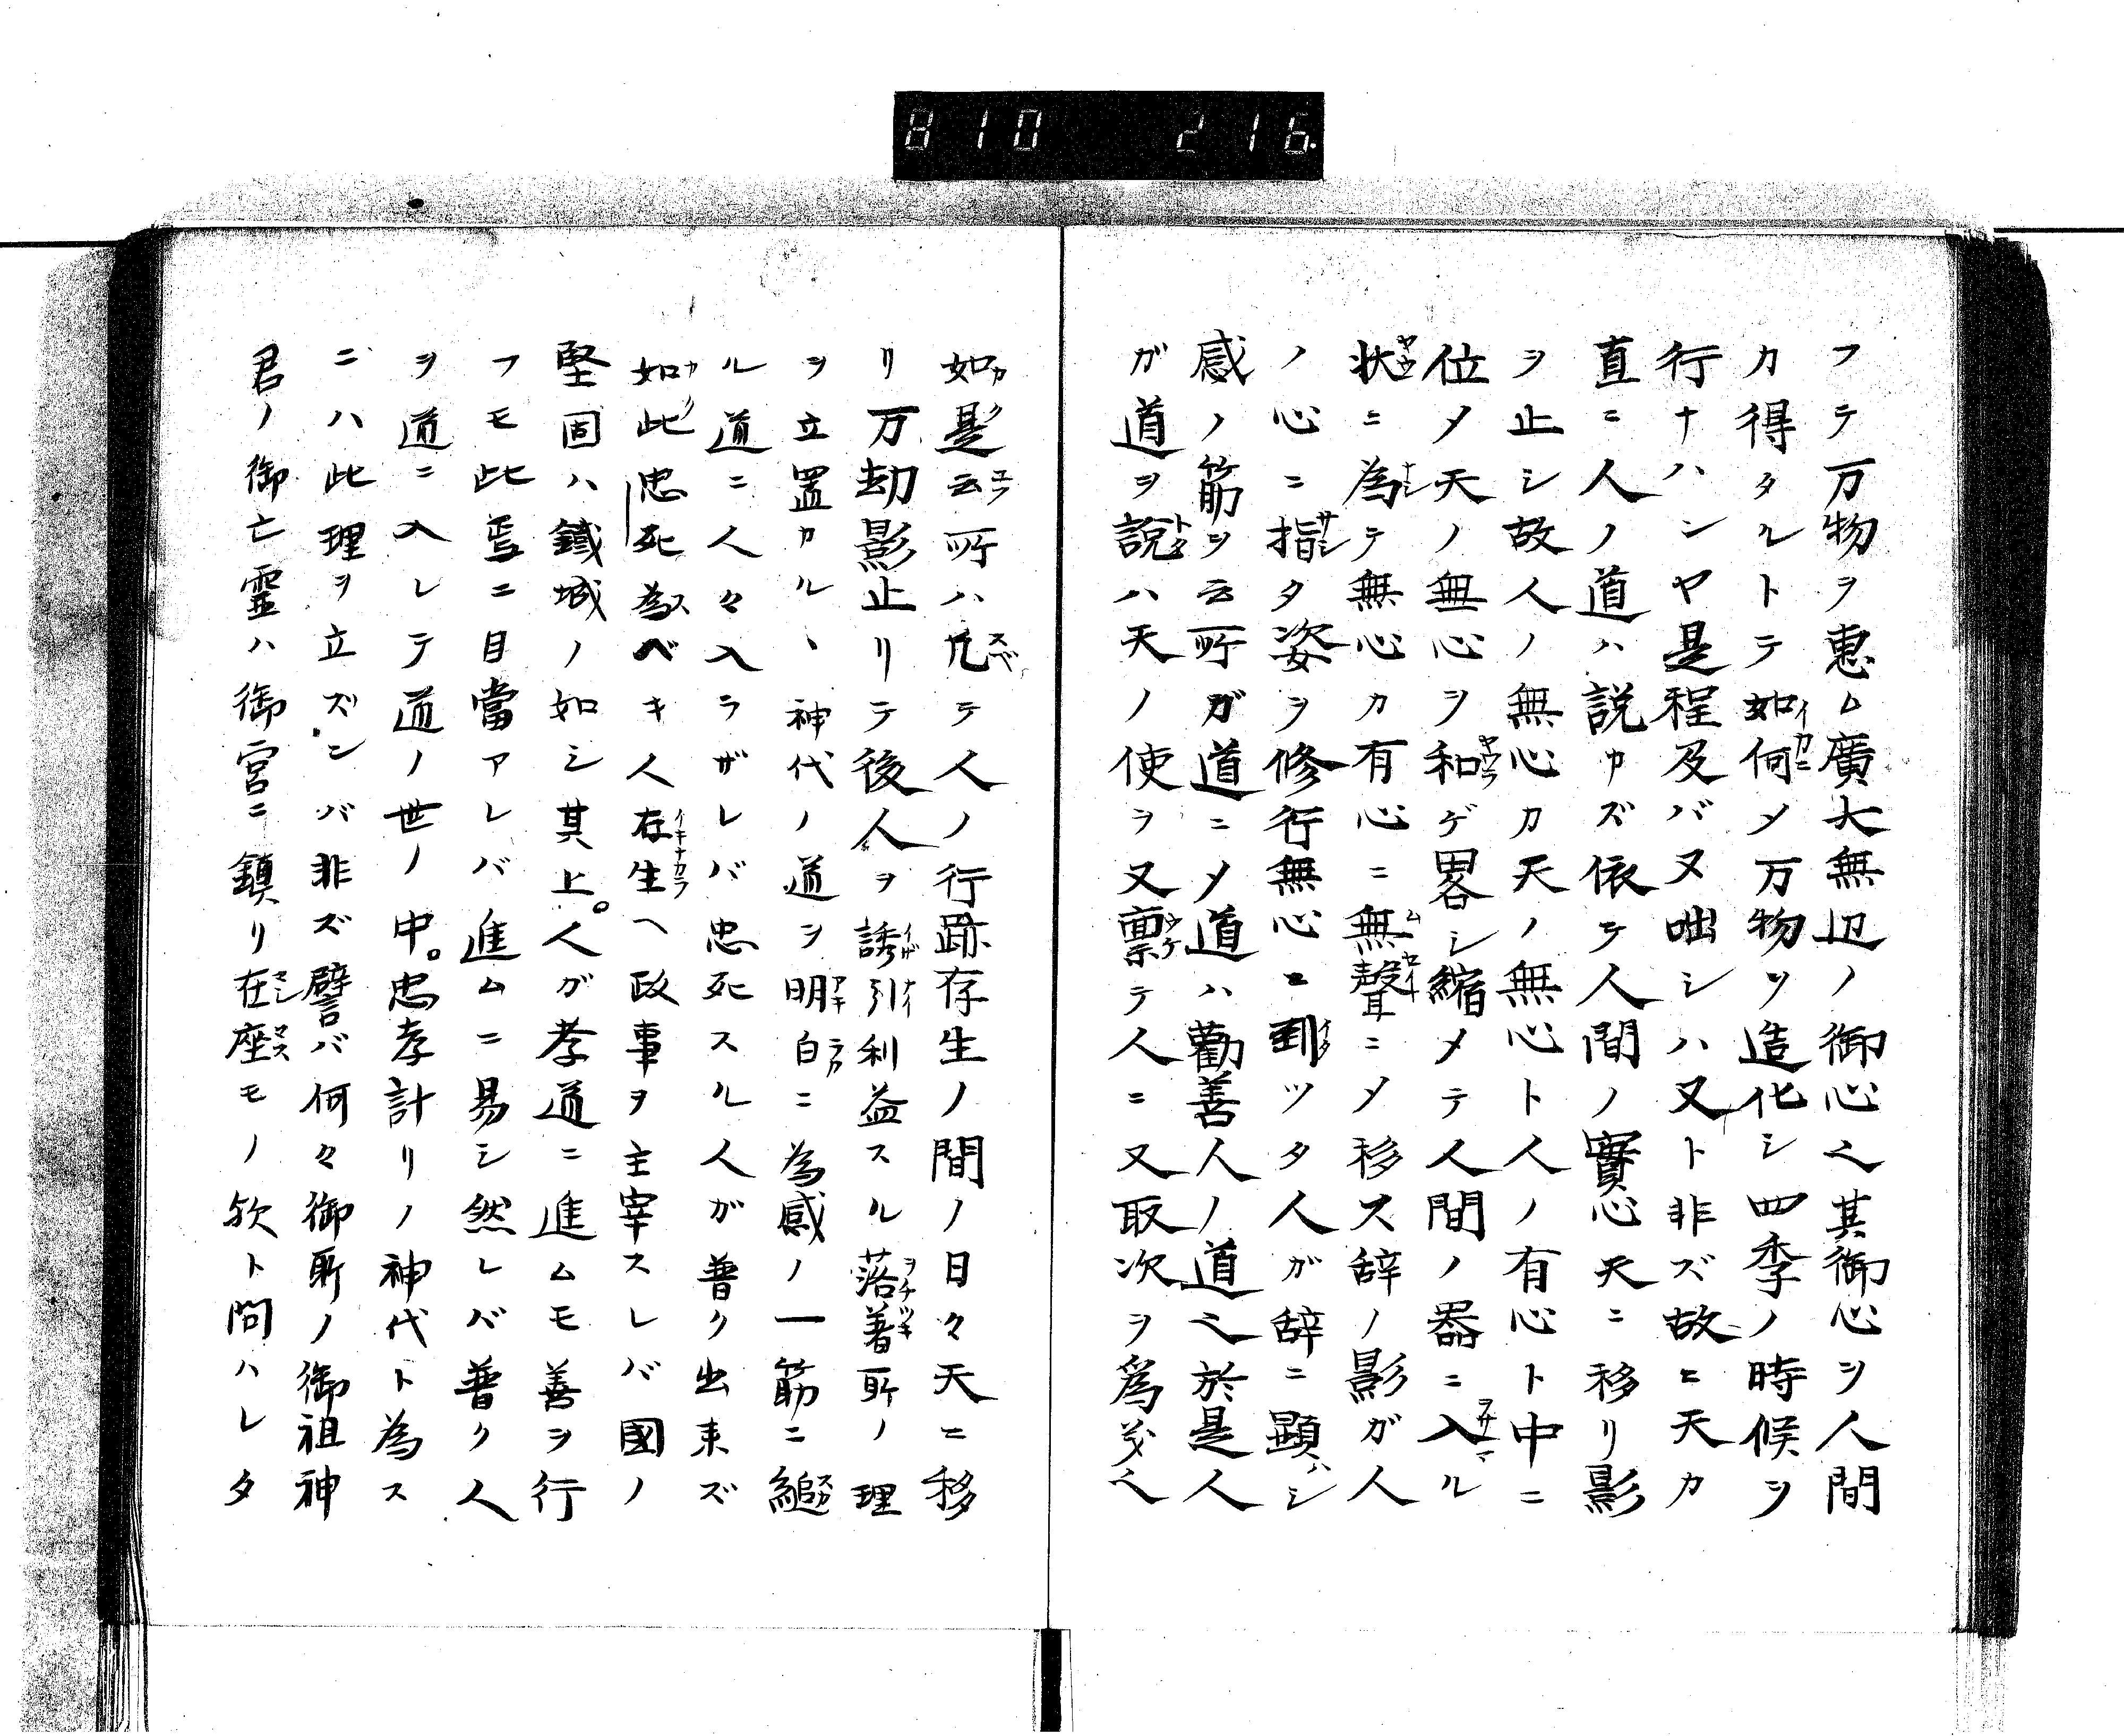 810 216
フテ万物ヲ恵ム廣大無辺ノ御心也其御心ヲ人間
カ得タルトテ如何メ万物ヲ造化シ四季ノ時候ヲ
行ナハンヤ是程及バヌ咄シハ又ト非ズ故ニ天カ
直ニ人ノ道ハ説カズ依テ人間ノ實心天ニ移リ影
ヲ止シ故人ノ無心カ天ノ無心ト人ノ有心ト中ニ
位メ天ノ無心ヲ和ゲ畧シ縮メテ人間ノ器ニ入ル
状ニ為テ無心カ有心ニ無聲ニメ移ス辞ノ影ガ人
ノ心ニ指タ姿ヲ修行無心ニ到ツタ人ガ辞ニ顕シ
感ノ筋ヲ云所ガ道ニメ道ハ勸善人ノ道也於是人
ガ道ヲ説ハ天ノ使ヲ又稟テ人ニ又取次ヲ為並也
如是云所ハ凡テ人ノ行跡存生ノ間ノ日々天ニ移
リ万劫影止リテ後人ヲ誘引利益スル落着所ノ理
ヲ立置カル丶神代ノ道ヲ明白ニ為感ノ一筋ニ縋
ル道ニ人々入ラザレバ忠死スル人ガ普ク出来ズ
如此忠死為ベキ人存生ヘ政事ヲ主宰スレバ國ノ
堅固ハ鐵城ノ如シ其上。人ガ孝道ニ進ムモ善ヲ行
フモ此焉ニ目當アレバ進ムニ易シ然レバ普ク人
ヲ道ニ入レテ道ノ世ノ中。忠孝計リノ神代ト為ス
ニハ此理ヲ立ズンバ非ズ譬バ何々御所ノ御祖神
君ノ御亡霊ハ御宮ニ鎮リ在座モノ欤ト問ハレタ